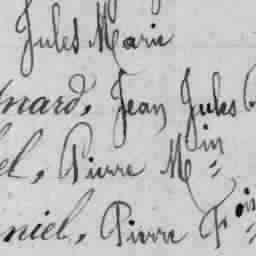 Jules Marie
nard, Jean Jules
el, Pierre Min
niel, Pierre Fois